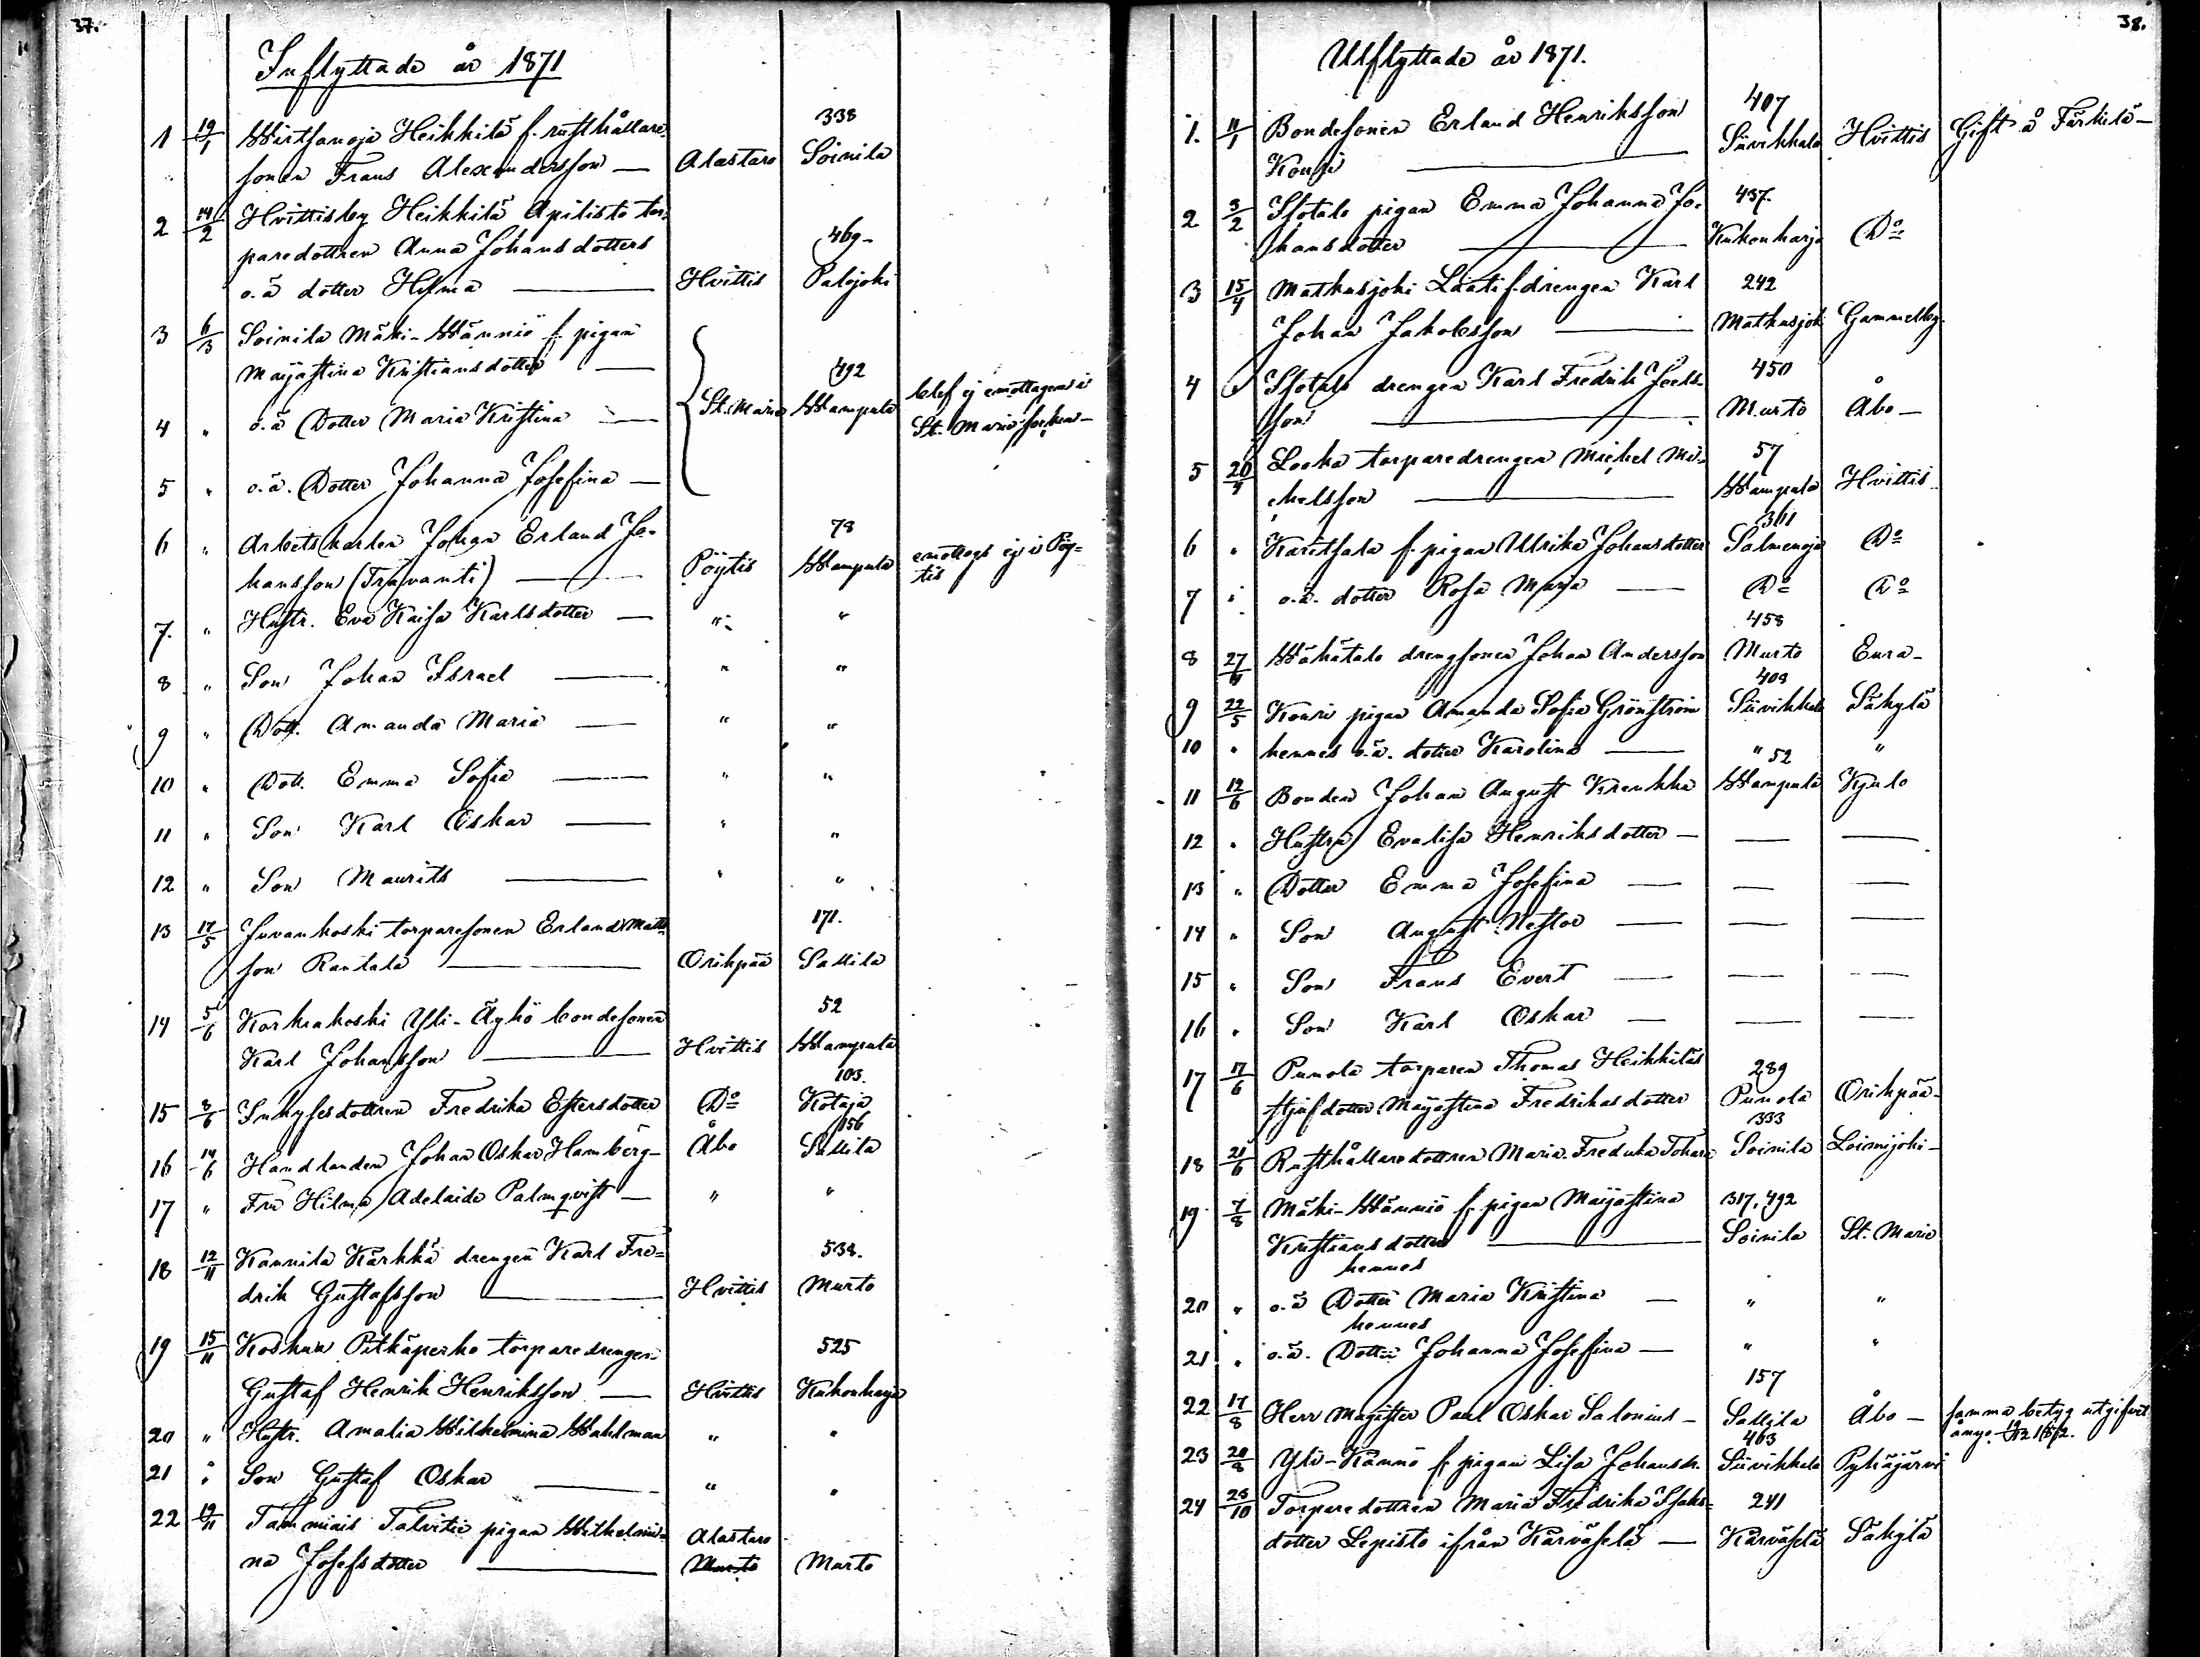 37.
Inflyttade år 1871
1 19/1 Wirtsanoja Heikkilä f. rusthållare 338
sonen Frans Alexandersson — Alastaro Soinila
2 14/2 Hvittisby Heikkilä Apilisto tor-
paredottren Anna Johansdotters 469-
o.ä dotter Hilma — Hvittis Palojoki
3 6/3 Soinila Mäki-Wänniö f. pigan
Maijastina Kristiansdotter — 492
4 " o.ä Dotter Maria Kristina — St. Marie Wampula blef ej emottagen i
St. Marie socken-
5 " o.ä. Dotter Johanna Josefina —
6 " Arbetskarlen Johan Erland Jo- 78
hansson (Travanti) — Pöytis Wampula emottogs ej i Pöy-
tis
7. " Hustr. Eva Kaisa Karlsdotter — " "
8 " Son Johan Israel — " "
9 " Dott. Amanda Maria — " "
10 " Dott. Emma Sofia — " "
11 " Son Karl Oskar — " "
12 " Son Maurits — " "
13 17/5 Juvankoski torparesonen Erland Matts- 171.
son Rantala — Oripää Sallila
14 5/6 Korkeakoski Yli-Äykö bondesonen 52
Karl Johansson — Hvittis Wampula
15 8/6 Inhysesdottren Fredrika Estersdotter Do 103. Kotaja
16 14/6 Handlanden Johan Oskar Hamberg- Åbo 156 Sallila
17 " Fru Hilma Adelaide Palmqvist — " "
18 12/11 Kannila Kärkkä drengen Karl Fre- 538.
drik Gustafsson — Hvittis Murto
19 15/11 Koskue Pitkäperko torparedrengen 525
Gustaf Henrik Henriksson — Hvittis Kukonharja
20 " Hustr. Amalia Wilhelmina Wahlman " "
21 " Son Gustaf Oskar — " "
22 19/11 Tammiais Talvitie pigan Wilhelmi- Alastaro
na Josefsdotter — Murto Murto
38.
Utflyttade år 1871.
1. 11/1 Bondesonen Erland Henriksson 407 Siivikkala Hvittis Gift å Färkilä-
Konsi —
2 3/2 Isotalo pigan Emma Johanna Jo- 437.
hansdotter — Kukonharja Do
3 15/4 Matkusjoki Laati f. drengen Karl 242
Johan Jakobsson — Matkusjoki Gammelby-
4 " Isotalo drengen Karl Fredrik Joels- 450
son — Murto Åbo-
5 20/4 Looka torparedrengen Michel Mi- 57
chelsson — Wampula Hvittis
6 " Karitsala f. pigan Ulrika Johansdotter 361 Salmenoja Do
7 " o.ä. dotter Rosa Maria — Do Do
8 27/4 Wähätalo drengsonen Johan Andersson 458 Murto Eura-
9 22/5 Konsi pigan Amanda Sofia Grönström 408 Siivikkala Säkylä
10 " hennes o.ä. dotter Karolina — " "
11 12/6 Bonden Johan August Krenkka 52 Wampula Kjulo
12 " Hustru Evalisa Henriksdotter — — —
13 " Dotter Emma Josefina — — —
14 " Son August Nestor — — —
15 " Son Frans Evert — — —
16 " Son Karl Oskar — — —
17 17/6 Punola torparen Thomas Heikkiläs 289
styfdotter Maijastina Fredriksdotter Punola Oripää-
18 21/6 Rusthållaredottren Maria Fredrika Johans 333 Soinila Loimijoki-
19 7/8 Mäki-Wänniö f. pigan Maijastina 317, 492
Kristiansdotter — Soinila St. Marie
hennes
20 " o.ä Dotter Maria Kristina — " "
hennes
21 " o.ä. Dotter Johanna Josefina — " "
22 17/8 Herr Magister Paul Oskar Salonius - 157 Sallila Åbo — samma betyg utgifvet
ånyo 1872.
23 20/8 Yli-Kännö f. pigan Lisa Johansd. 463 Siivikkala Pyhäjärvi
24 25/10 Torparedottren Maria Fredrika Isaks- 241
dotter Lepistö ifrån Kärväselä — Kärväselä Säkylä